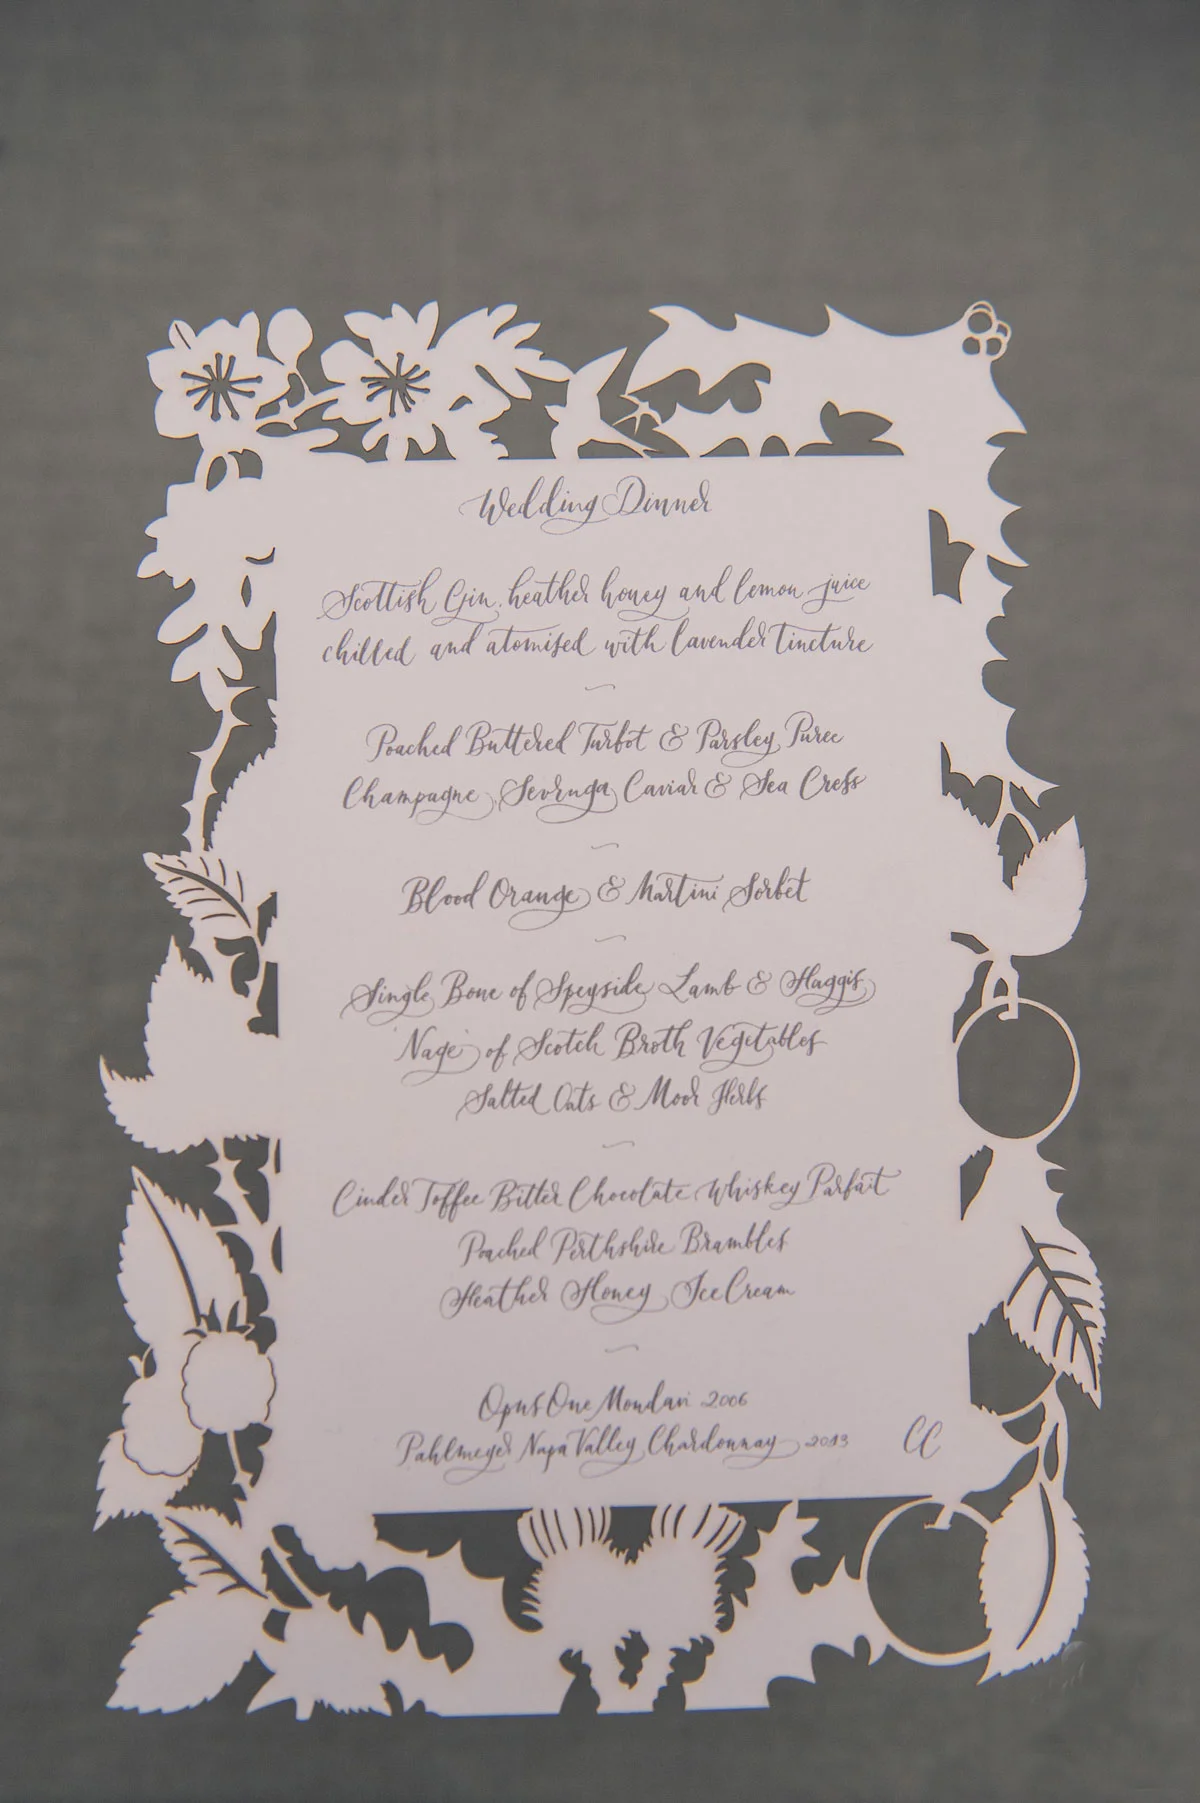 Wedding Dinner
Scottish Gin, heather honey and lemon juice
chilled and atomised with lavender tincture
Poached Buttered Turbot & Parsley Puree
Champagne, Sevruga Caviar & Sea Cress
Blood Orange & Martini Sorbet
Single Bone of Speyside Lamb & Haggis
'Nage' of Scotch Broth Vegetables
Salted Oats & Moor Herbs
Cinder Toffee Bitter Chocolate Whiskey Parfait
Poached Perthshire Brambles
Heather Honey Ice Cream
Opus One Mondavi 2006
Pahlmeyer Napa Valley Chardonnay 2013
CC